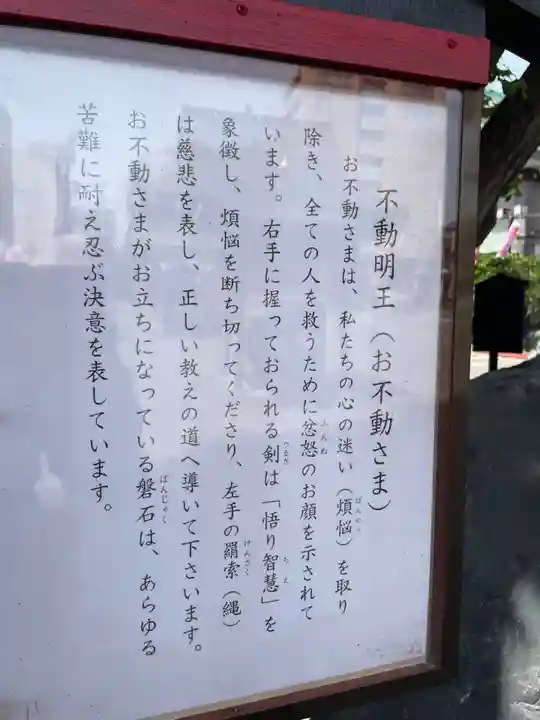 不動明王（お不動さま）
お不動さまは、私たちの心の迷い（煩悩）を取り
除き、全ての人を救うために忿怒のお顔を示されて
います。右手に握っておられる剣は「悟り智慧」を
象徴し、煩悩を断ち切ってくださり、左手の羂索（縄）
は慈悲を表し、正しい教えの道へ導いて下さいます。
お不動さまがお立ちになっている磐石は、あらゆる
苦難に耐え忍ぶ決意を表しています。